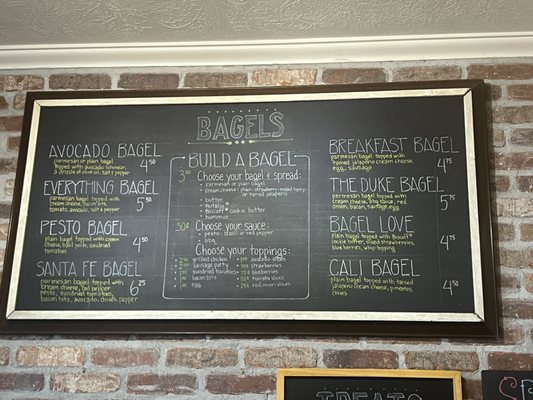 BAGELS
AVOCADO BAGEL
parmesan or plain bagel
topped with avocado schmear,
a drizzle of olive oil, salt + pepper
4 50
EVERYTHING BAGEL
parmesan bagel topped with
cream cheese,
tomato, avocado, salt + pepper
5 50
PESTO BAGEL
plain bagel topped with cream
cheese, basil pesto,
tomatoes
4 50
SANTA FE BAGEL
parmesan bagel topped with
cream cheese, bell pepper
pesto, sundried tomatoes,
bacon bits, avocado, onion, pepper
6 25
BUILD A BAGEL
3 00
Choose your bagel + spread:
parmesan or plain bagel
cream cheese - plain, strawberry, mixed berry
or tamed jalapeño
butter
nutella
biscoff cookie butter
hummus
50¢
Choose your sauce:
pesto (basil or red pepper)
bbq
Choose your toppings:
grilled chicken
sausage patty
sundried tomatoes
bacon
egg
strawberries
blueberries
tomato slices
red onion slices
BREAKFAST BAGEL
parmesan bagel topped with
tamed jalapeño cream cheese,
egg, sausage
4 75
THE DUKE BAGEL
parmesan bagel topped with
cream cheese, bbq sauce, red
onion, bacon, sausage, egg
5 75
BAGEL LOVE
plain bagel topped with biscoff
cookie butter, sliced strawberries,
blueberries, whip topping
4 75
CALI BAGEL
plain bagel topped with
tamed jalapeño cream cheese, pimentos,
chives
4 50
TREATS